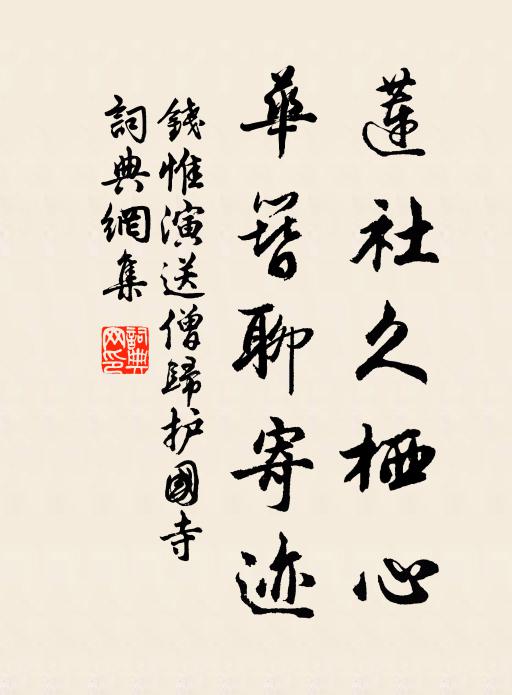 蓮社久栖心
華簪聊寄迹
錢惟演送僧歸护國寺
詞典網集
詞典网印